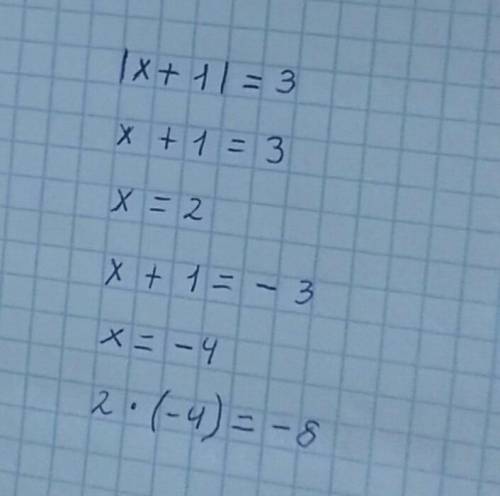 |x + 1| = 3
x + 1 = 3
x = 2
x + 1 = - 3
x = -4
2 · (-4) = -8